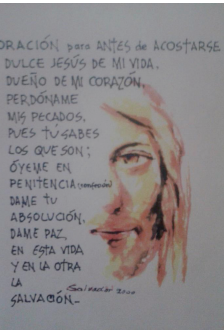 ORACIÓN para ANTES de ACOSTARSE
DULCE JESÚS DE MI VIDA.
DUEÑO DE MI CORAZÓN,
PERDÓNAME
MIS PECADOS,
PUES TU SABES
LOS QUE SON;
ÓYEME EN
PENITENCIA (confesión)
DAME TU
ABSOLUCIÓN.
DAME PAZ,
EN ESTA VIDA
Y EN LA OTRA
LA
SALVACIÓN_